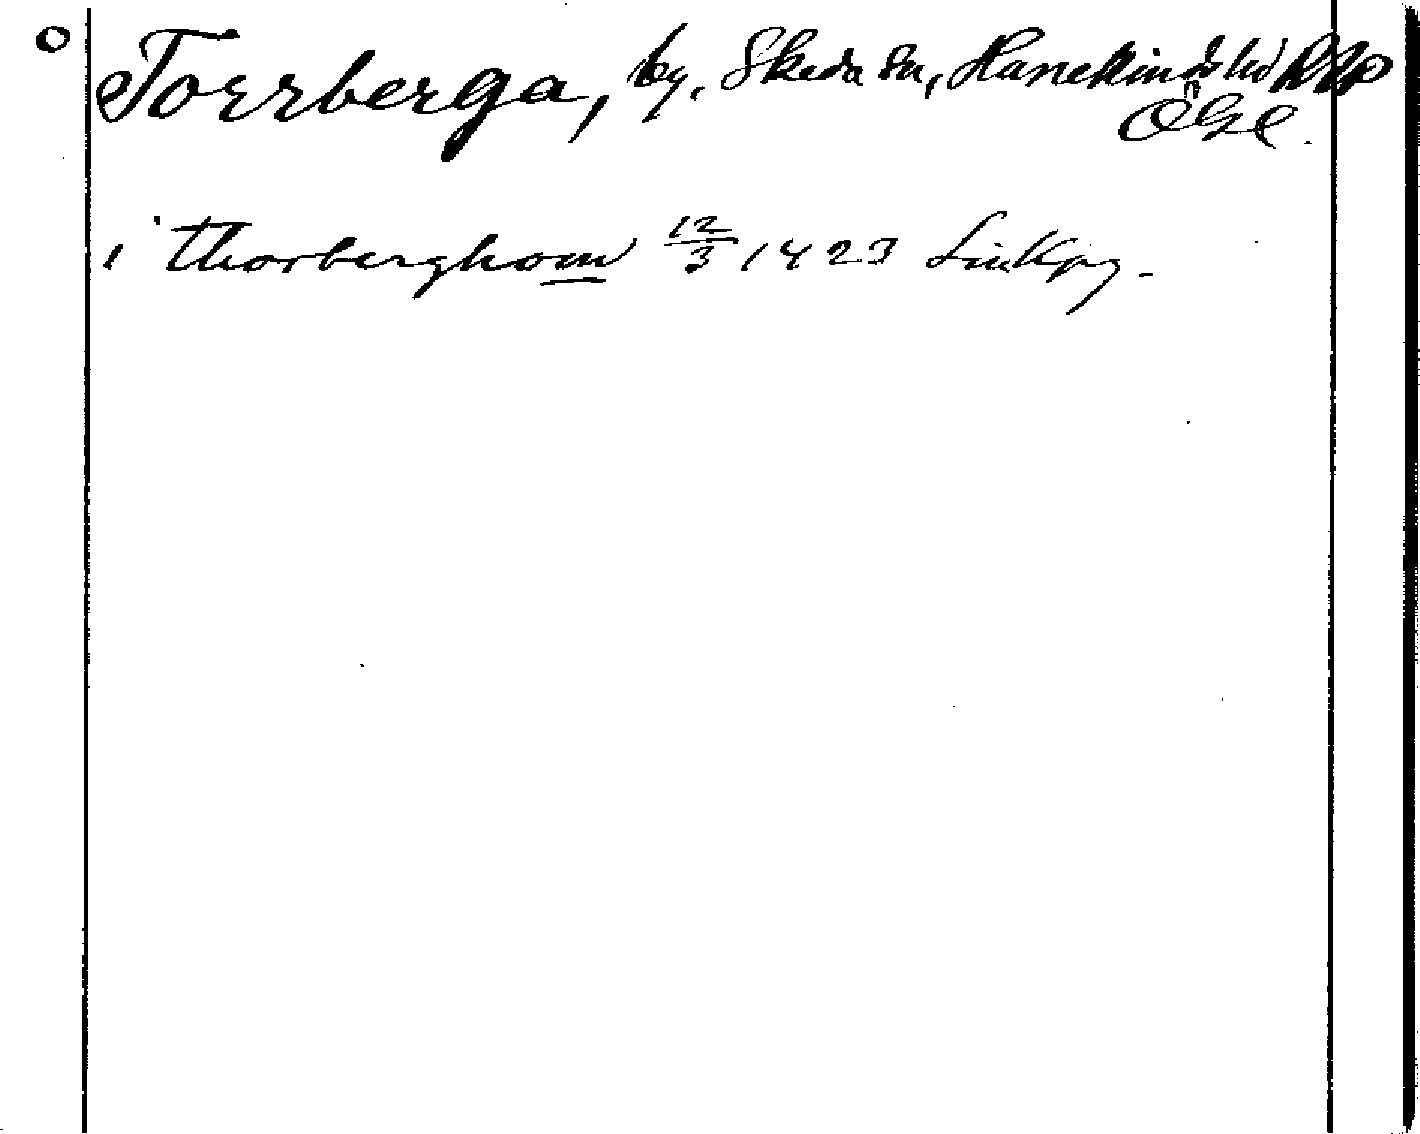 o Torrberga, by, Skeda sn, Hanekinds hd
ÖGl.
i thorberghom 12/3 1423 Linkpg.